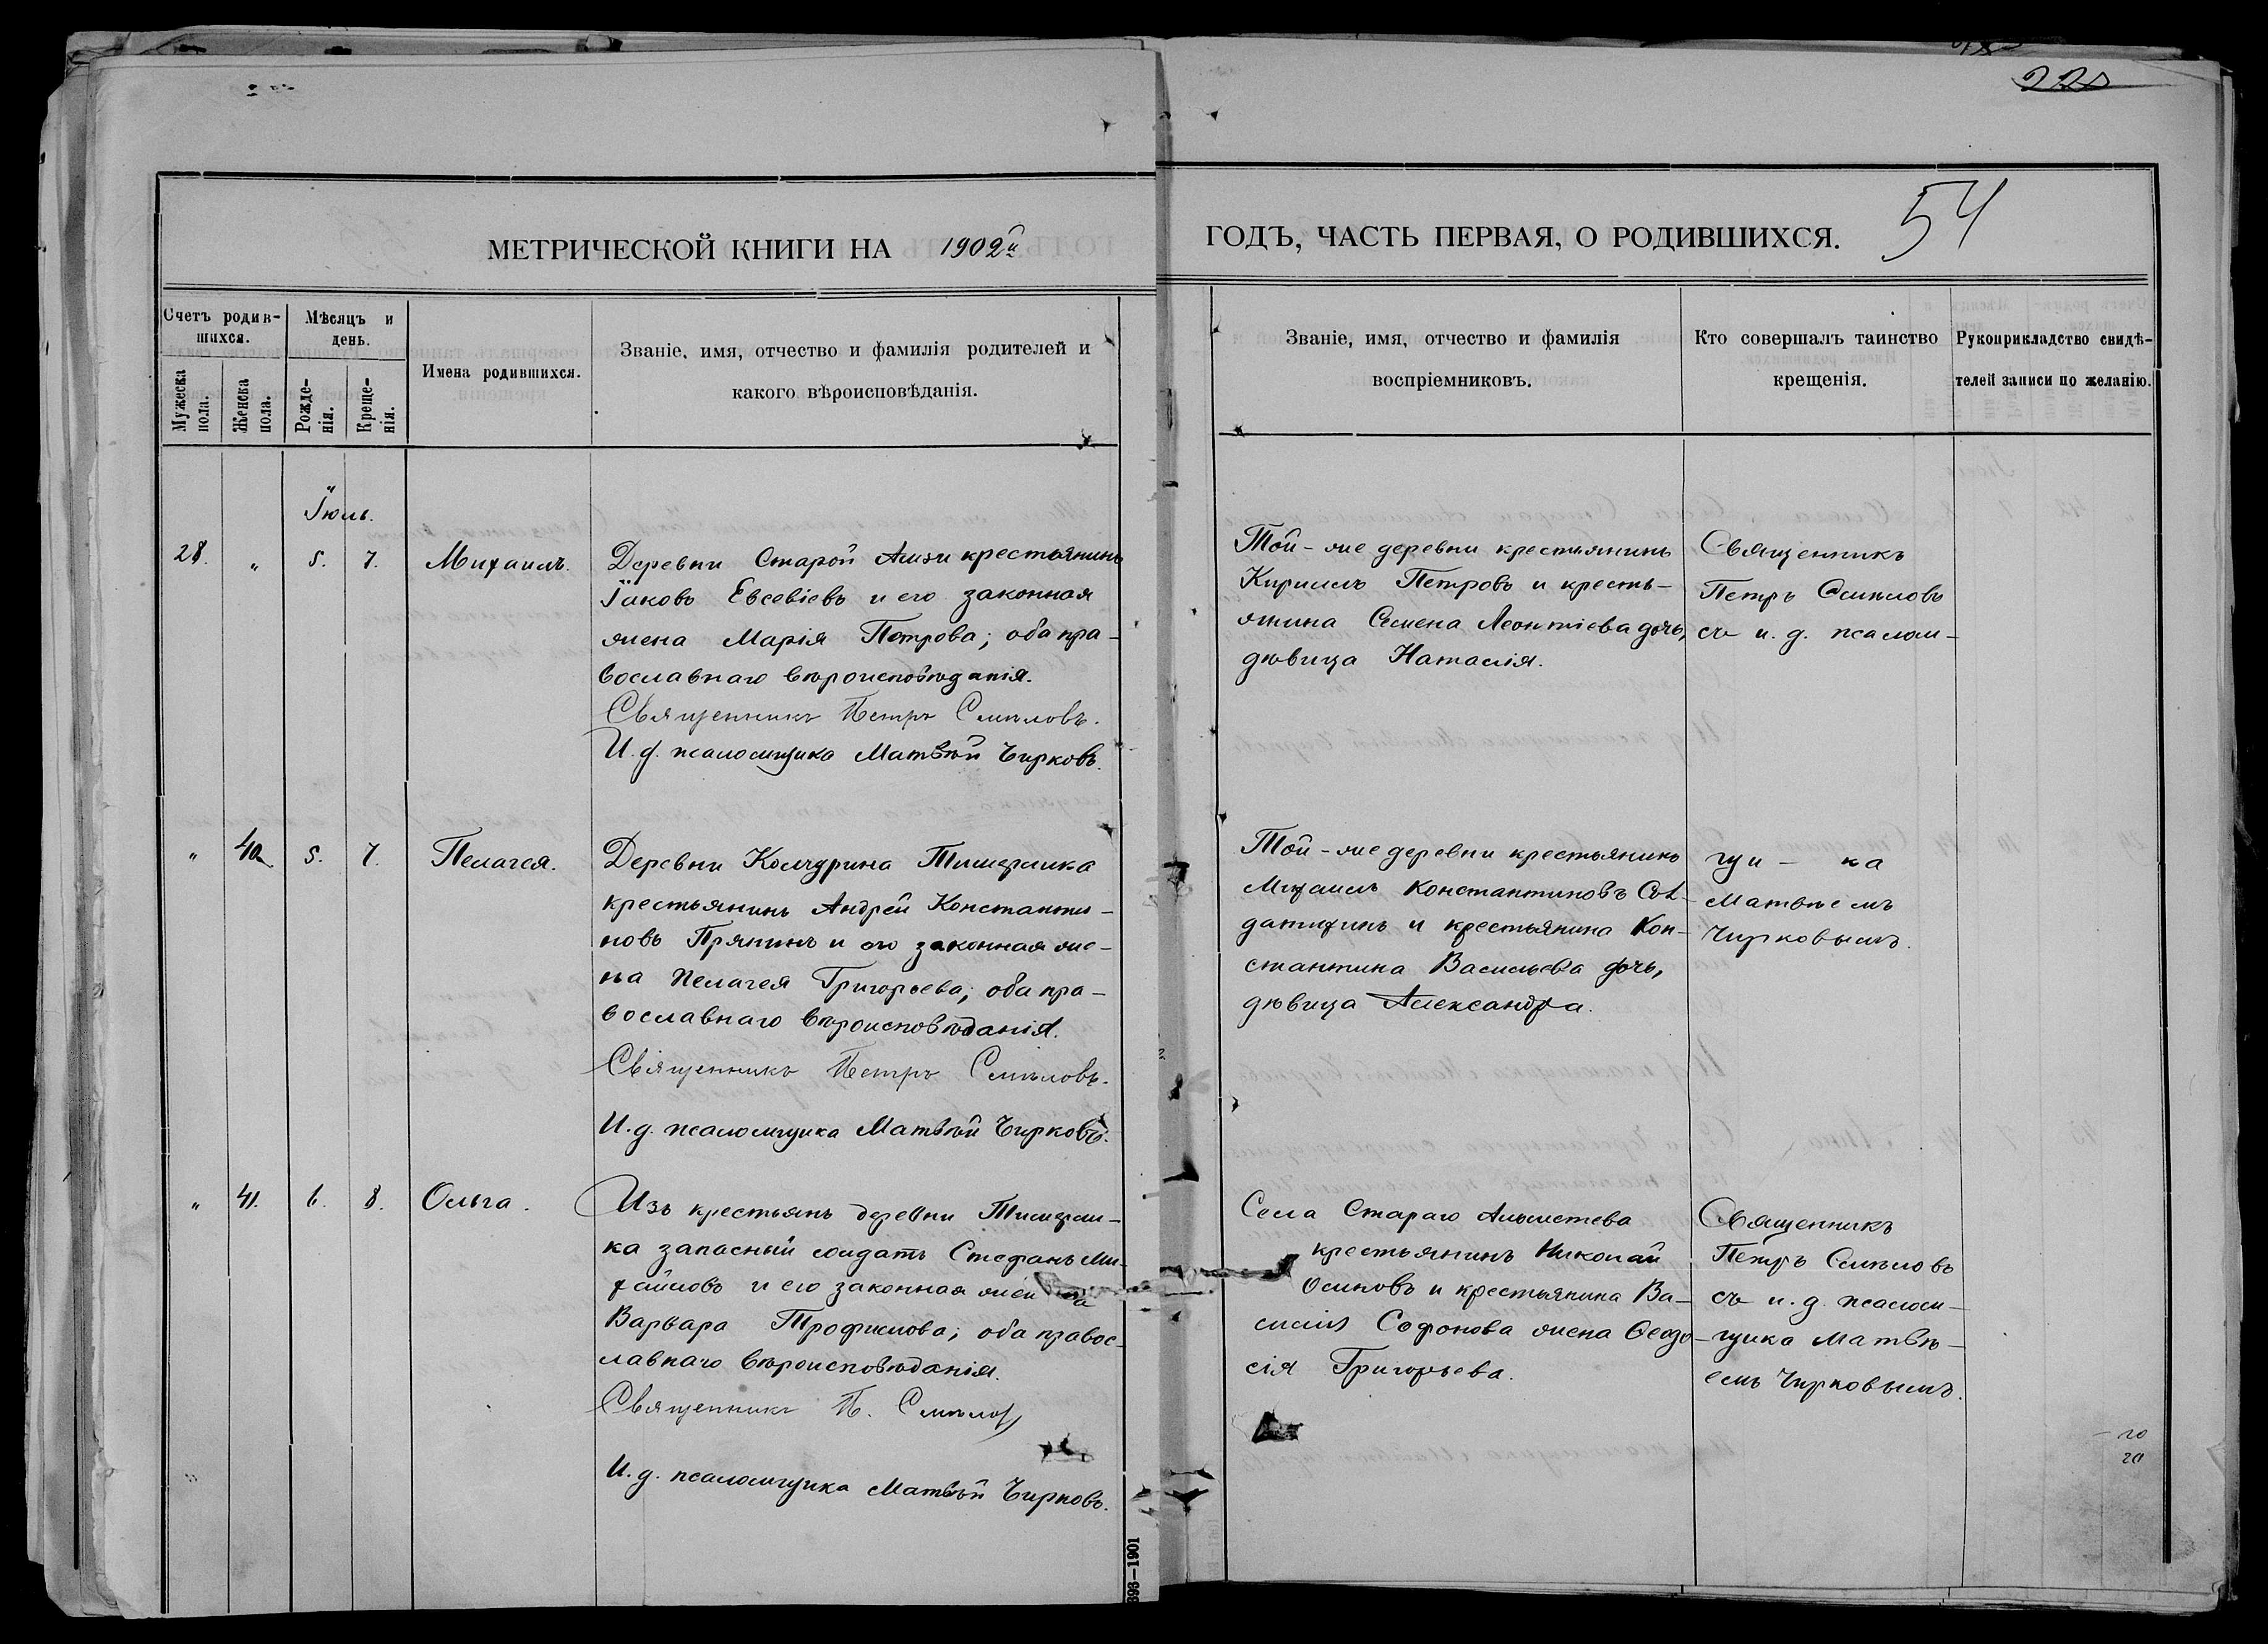 220
54
МЕТРИЧЕСКОЙ КНИГИ НА 1902й
ГОДЪ, ЧАСТЬ ПЕРВАЯ, О РОДИВШИХСЯ.
Счетъ родив-
шихся.
Мужеска
пола.
Женска
пола.
Мѣсяцъ и
день.
Рожде-
нія.
Креще-
нія.
Имена родившихся.
Званіе, имя, отчество и фамилія родителей и
какого вѣроисповѣданія.
Званіе, имя, отчество и фамилія
воспріемниковъ.
Кто совершалъ таинство
крещенія.
Рукоприкладство свидѣ-
телей записи по желанію.
Іюль.
28. " 5. 7. Михаилъ.
Деревни Старой крестьянинъ
Іаковъ Евсевіевъ и его законная
жена Марія Петрова; оба пра-
вославнаго вѣроисповѣданія.
Священникъ Петръ Смѣловъ.
И. д. псаломщика Матвѣй Чирковъ.
Той-же деревни крестьянинъ
Кириллъ Петровъ и кресть-
янина Семена Леонтіева дочь,
дѣвица Наталія.
Священникъ
Петръ Смѣловъ
съ и. д. псалом-
" 40. 5. 7. Пелагея.
Деревни
крестьянинъ Андрей Константи-
новъ Прянинъ и его законная же-
на Пелагея Григорьева; оба пра-
вославнаго вѣроисповѣданія.
Священникъ Петръ Смѣловъ.
И. д. псаломщика Матвѣй Чирковъ.
Той-же деревни крестьянинъ
Михаилъ Константиновъ Сол-
даткинъ и крестьянина Кон-
стантина Васильева дочь,
дѣвица Александра.
щи - ка
Матвѣемъ
Чирковымъ.
" 41. 6. 8. Ольга.
Изъ крестьянъ деревни
запасный солдатъ Стефанъ Ми-
хайловъ и его законная жена
Варвара Трофимова; оба правос-
лавнаго вѣроисповѣданія.
Священникъ П. Смѣловъ
И. д. псаломщика Матвѣй Чирковъ.
Села Стараго Альметева
крестьянинъ Николай
Осиповъ и крестьянина Ва-
силія Софонова жена Ѳеодо-
сія Григорьева.
Священникъ
Петръ Смѣловъ
съ и. д. псалом-
щика Матвѣ-
емъ Чирковымъ.
893—1901